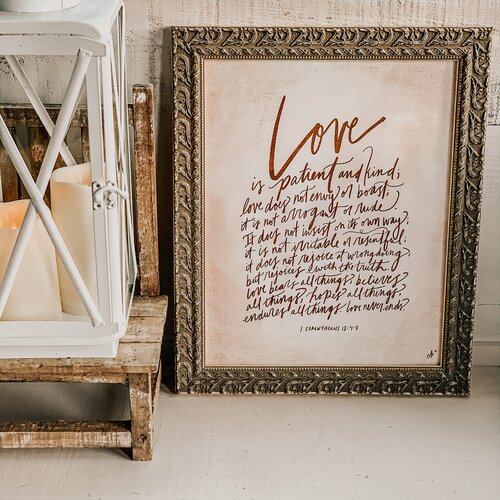 Love
is patient and kind;
love does not envy or boast;
it is not arrogant or rude
It does not insist on its own way;
it is not irritable or resentful;
it does not rejoice at wrongdoing,
but rejoices with the truth.
Love bears all things, believes
all things, hopes all things,
endures all things love never ends.
1 CORINTHIANS 13:4-8